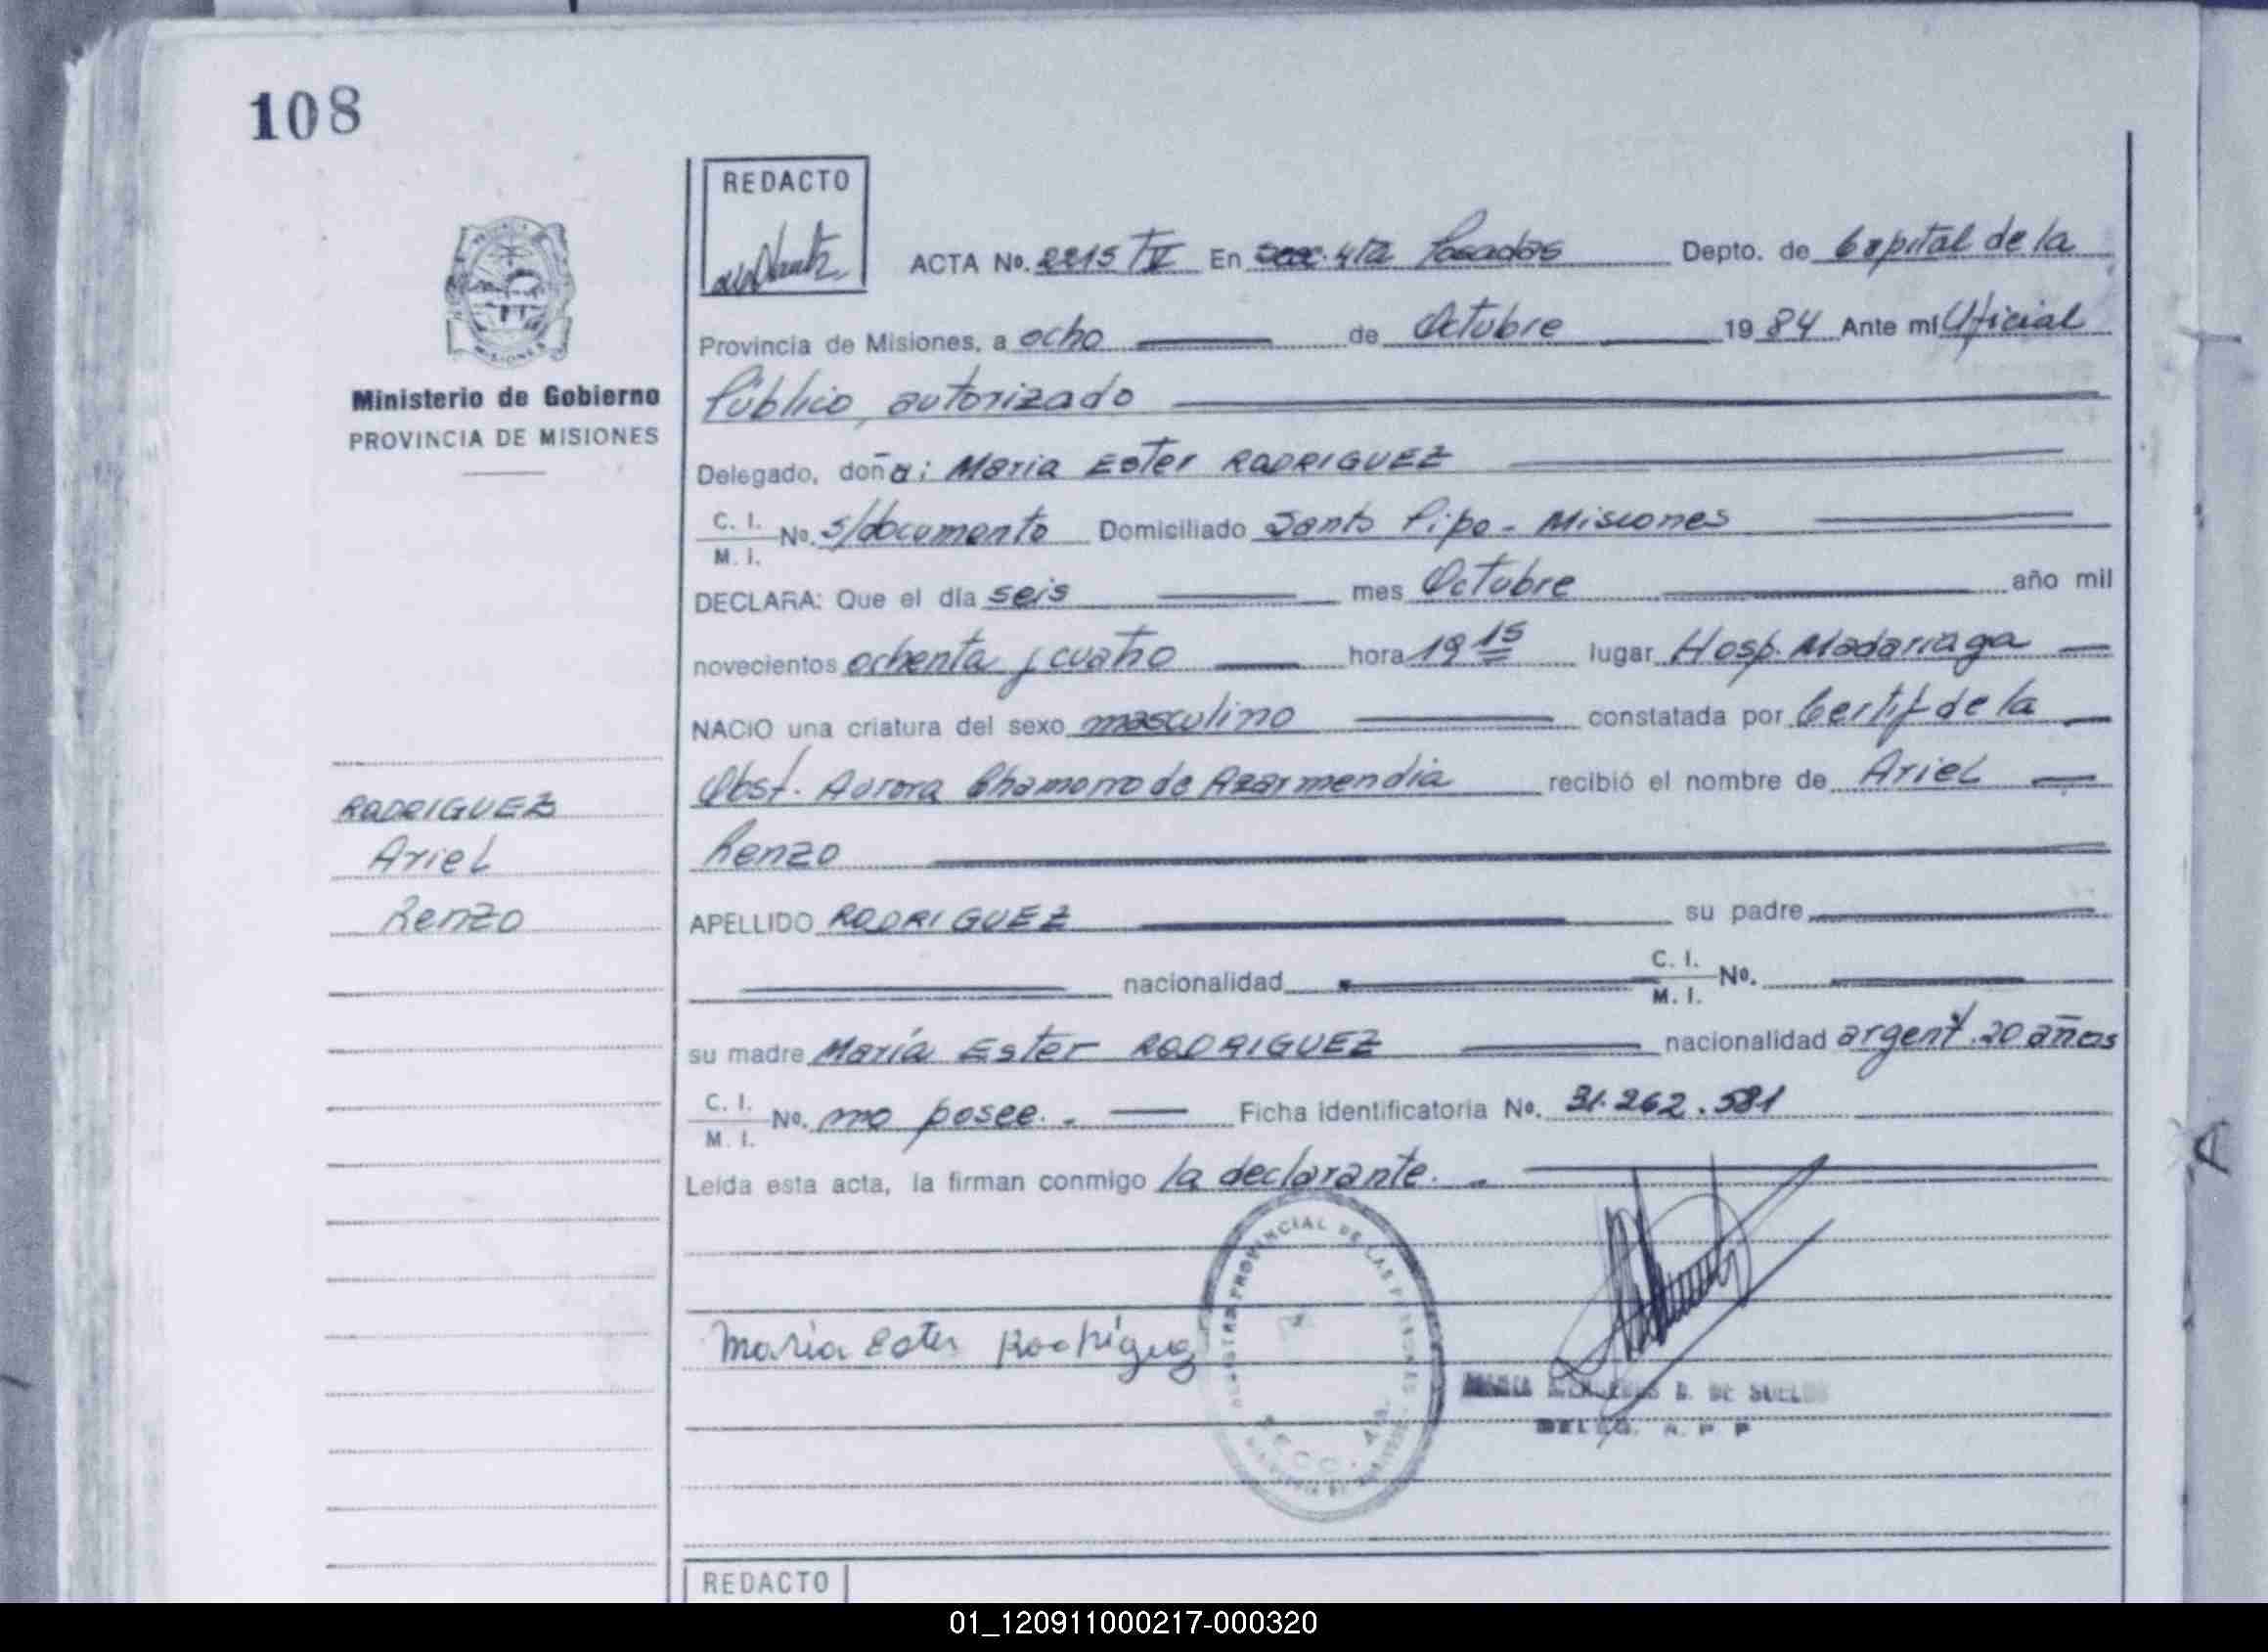 108
REDACTO
ACTA Nº. 2215 TV En Secc. 4ta Posadas Depto. de Capital de la
Provincia de Misiones, a ocho de Octubre 1984 Ante mí Oficial
Ministerio de Gobierno
PROVINCIA DE MISIONES
Público autorizado
Delegado, doña: Maria Ester RODRIGUEZ
C. I.
M. I. Nº. s/documento Domiciliado Santo Pipo - Misiones
DECLARA: Que el día seis mes Octubre año mil
novecientos ochenta y cuatro hora 19 15 lugar Hosp. Madariaga
NACIO una criatura del sexo masculino constatada por Certif de la
Obst. Aurora Chamorro de Azarmendia recibió el nombre de Ariel
Renzo
RODRIGUEZ
Ariel
Renzo
APELLIDO RODRIGUEZ su padre
nacionalidad C. I.
M. I. Nº.
su madre María Ester RODRIGUEZ nacionalidad argent. 20 años
C. I.
M. I. Nº. no posee. - Ficha identificatoria Nº. 31.262.581
Leída esta acta, la firman conmigo la declarante. -
PROVINCIAL DE LAS PERSONAS
Maria Ester Rodriguez
DE SUELDO
DELEG. R. P. P
REDACTO
A
01_120911000217-000320